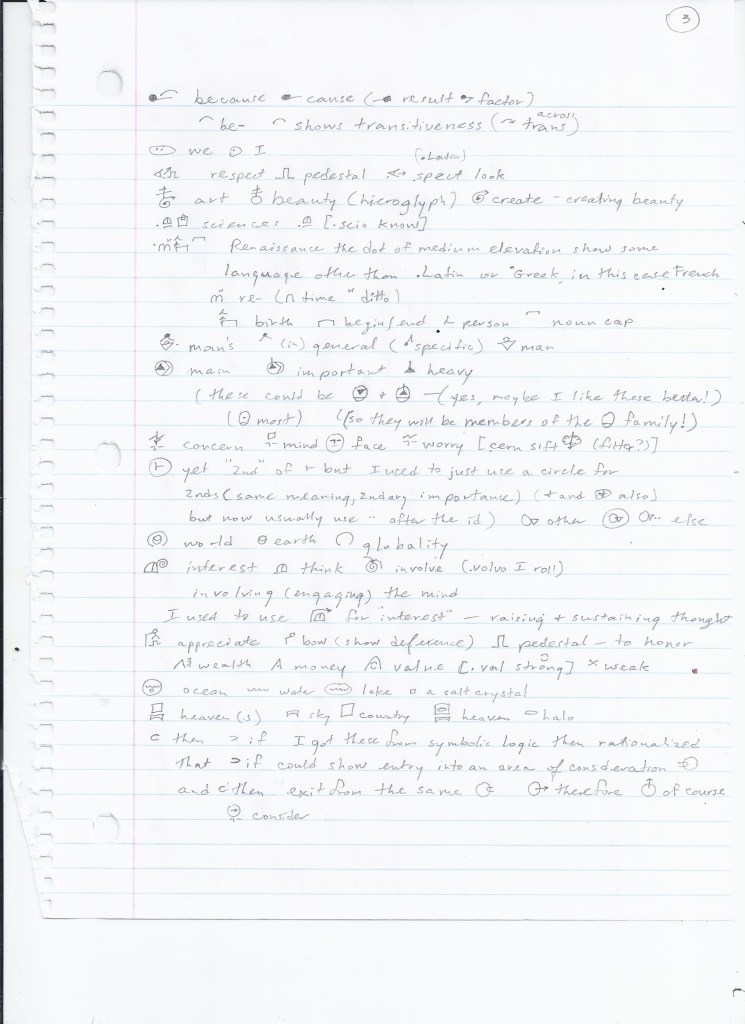 3
because cause ( result factor)
be- shows transitiveness ( across trans)
we I
respect pedestal (.Latin) spect look
art beauty (hieroglyph) create - creating beauty
sciences [.scio know]
Renaissance the dot of medium elevation show some
language other than .Latin or ˙Greek, in this case French
re- (∩ time " ditto)
birth begin/end person noun cap
man's (in) general ( specific) man
main important heavy
(these could be + —(yes, maybe I like these better!)
( most) (so they will be members of the family!)
concern mind face worry [cern sift (filter?)]
yet "2nd" of ⊢ but I used to just use a circle for
2nds (same meaning, 2ndary importance) (+ and ⊕ also)
but now usually use ·· after the id) other else
world earth globality
interest think involve (.volvo I roll)
involving (engaging) the mind
I used to use for "interest" — raising + sustaining thought
appreciate bow (show deference) pedestal — to honor
wealth money value [.val strong] × weak
ocean water lake a salt crystal
heaven(s) sky country heaven halo
⊂ then ⊃ if I got these from symbolic logic then rationalized
that ⊃ if could show entry into an area of consideration
and ⊂ then exit from the same therefore of course
consider